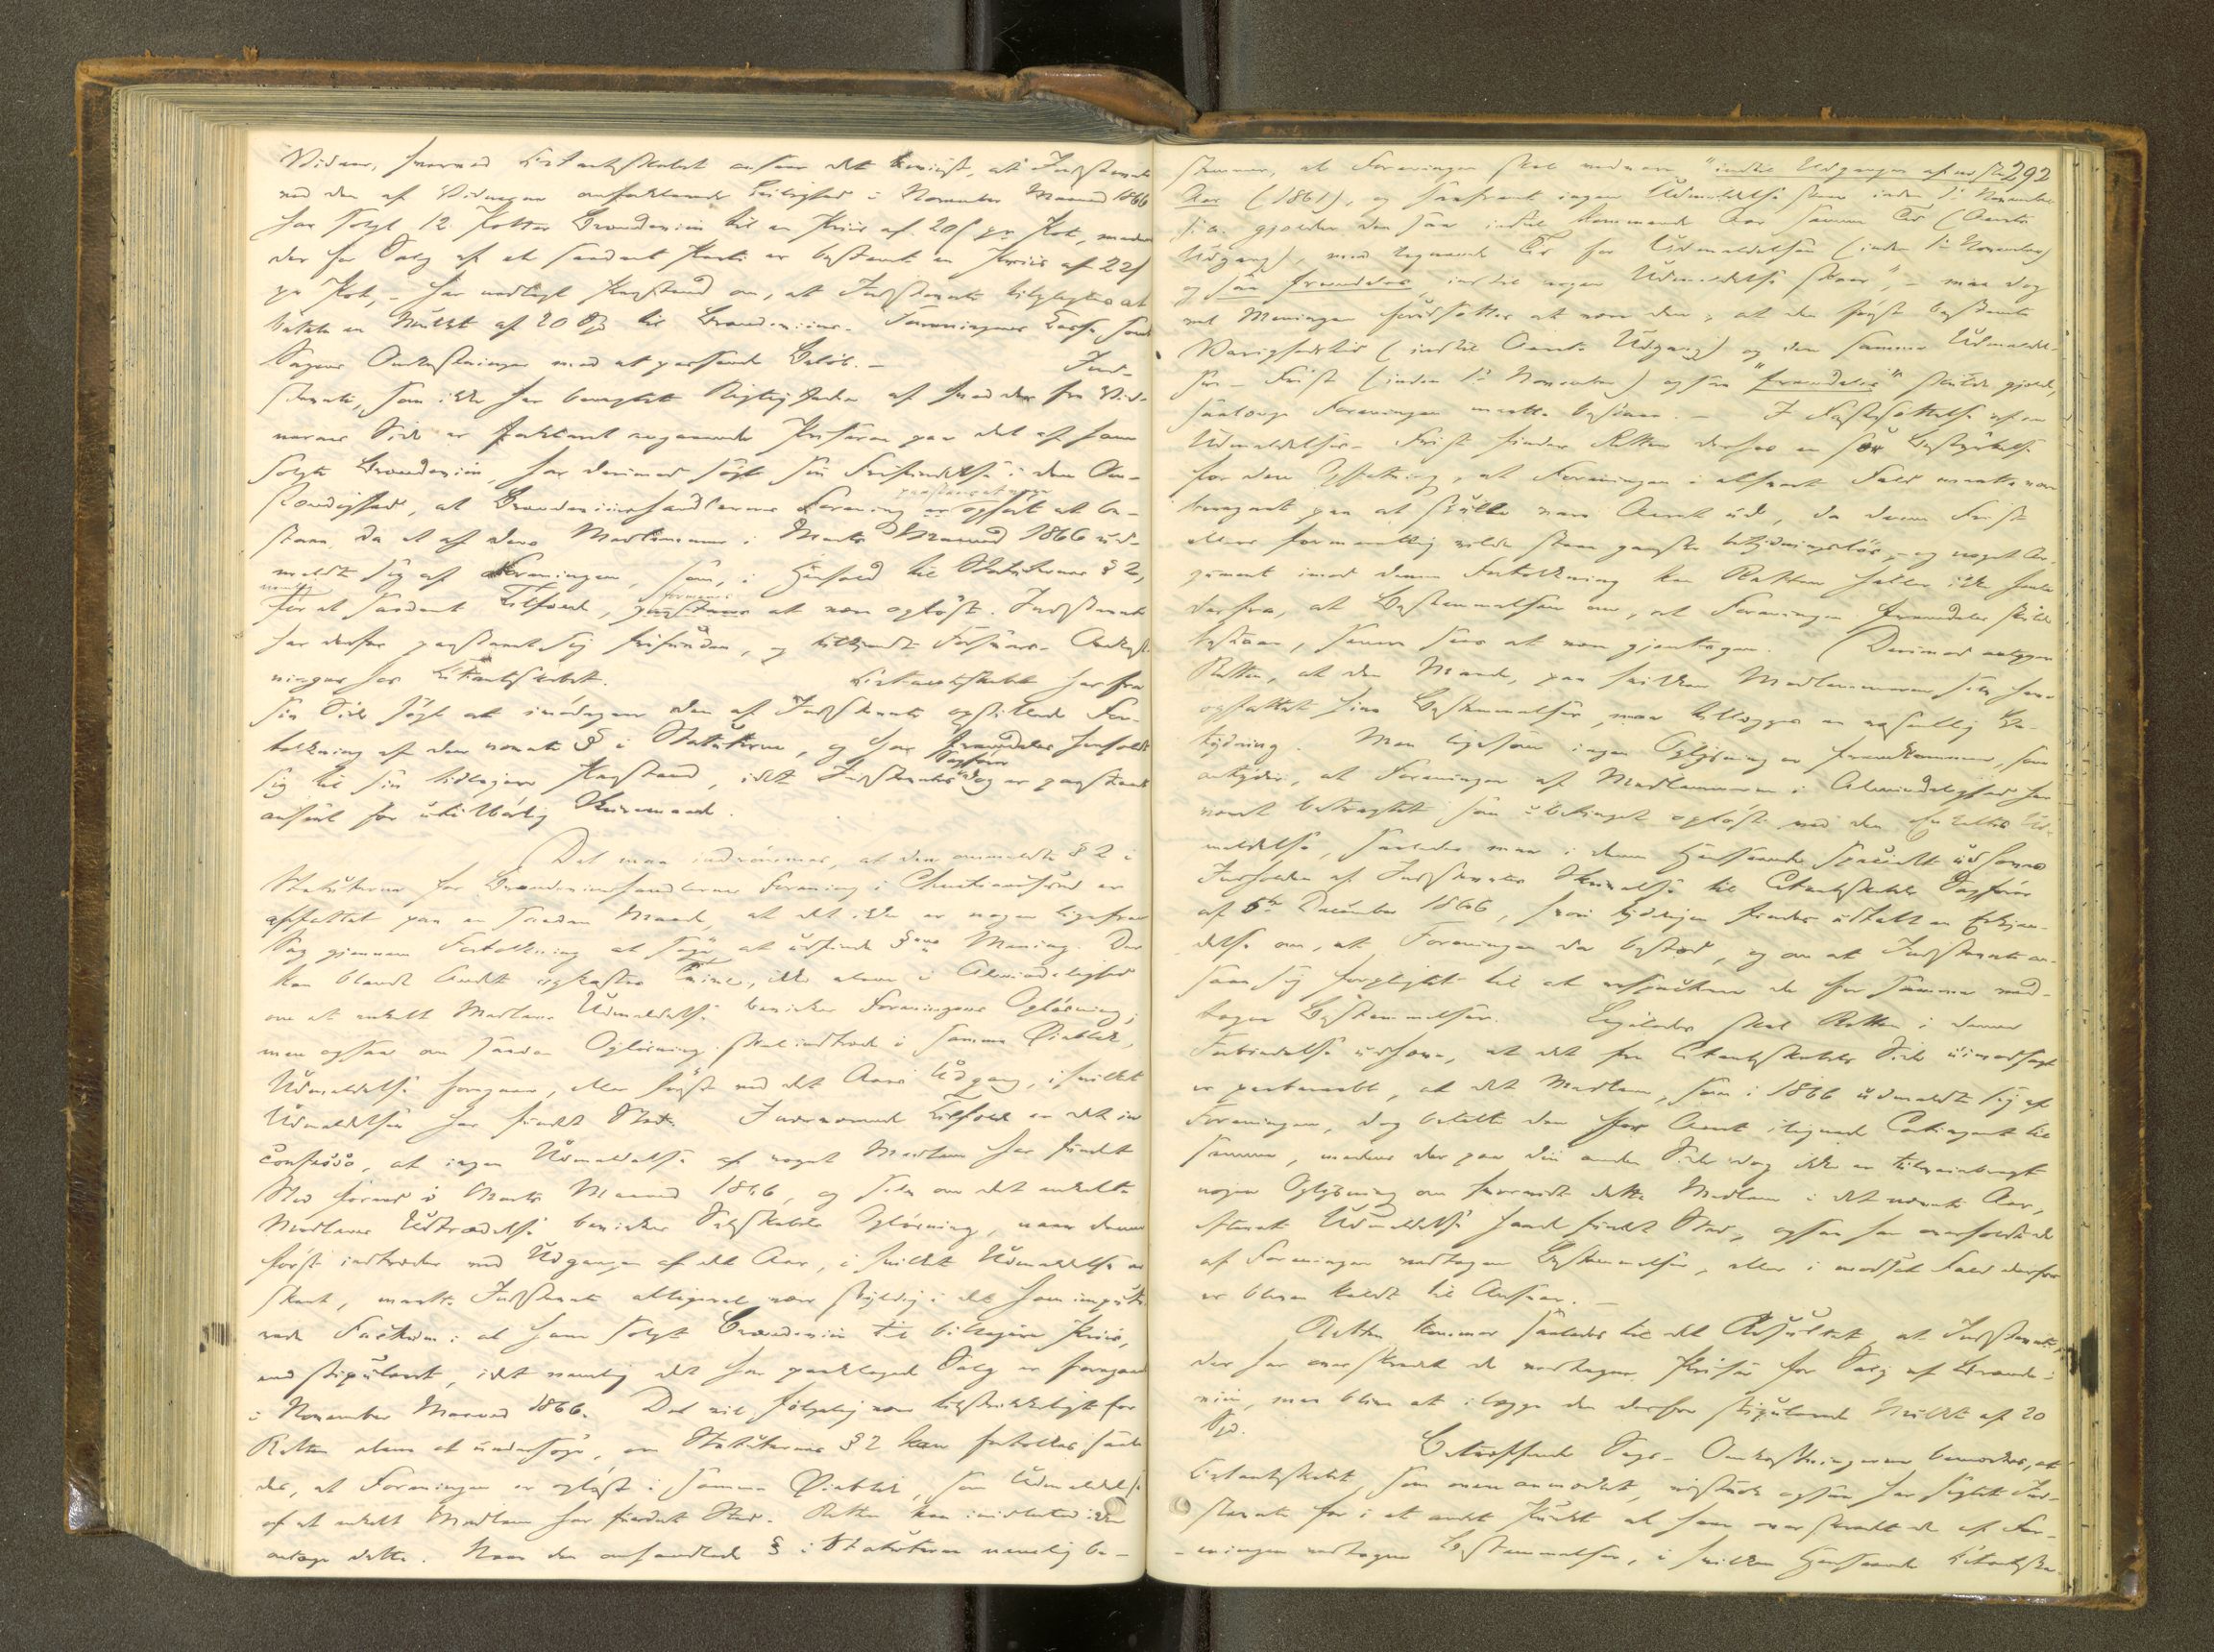 Vidner, hvorved Citantskabet anseer det beviist, at Indstevnte
ved den af Vidnerne omforklarede Leilighed i November Maaned 1866
har solgt 12 Potter Brændeviin til en Priis af 20 ß pr Pot, medens
der for Salg af et saadant Parti er bestemt en Priis af 22 ß
pr Pot, - har nedlagt Paastand om, at Indstevnte tilpligtes at
betale en Mulkt af 20 Spd til Brændeviins- Foreningens Casse samt
Sagens Omkostninger med et passende Beløb. - Ind-
stevnte, som ikke har benegtet Rigtigheden af hvad der fra Vid-
nernes Side er forklaret angaaende Priserne paa det af ham
solgte Brændeviin, har derimod søgt sin Frifindelse i den Om-
stændighed, at Brændeviinshandlernes Forening er ophørt at be-
staae, da et af dens Medlemmer i Marts Maaned 1866 ud-
meldte sig af Foreningen, som, i Henhold til Statuternes § 2,
for et saadant Tilfælde, formenes at være opløst. Indstevnte
har derfor paastaaet sig frifunden, og tilkjendt Forsvars- Omkost-
ninger hos Citantskabet. Citantskabet har fra
sin Side søgt at imødegaae den af Indstevnte opstillede For-
tolkning af den nævnte § i Statuterne, og har fremdeles henholdt
sig til sin tidligere Paastand, idet Indstevntes Sagfører dog er paastaaet
anseet for utilbørlig Skrivemaade.
Det maa indrømmes, at den ommeldte § 2 i
Statuterne for Brændeviinshandlernes Forening i Christianssund er
affattet paa en saadan Maade, at det ikke er nogen ligefrem
Sag gjennem Fortolkning at søge at udfinde §ens Mening. Der
kan blandt Andet opkastes Tvivl, ikke alene i Almindelighed
om et enkelt Medlems Udmeldelse bevirker Foreningens Opløsning,
men ogsaa om saadan Opløsning skal indtræde i samme Øieblik,
Udmeldelse foregaaer, eller først ved det Aars Udgang, i hvilket
Udmeldelsen har fundet Sted. I nærværende Tilfælde er det in
confesso, at ingen Udmeldelse af noget Medlem har fundet
Sted førend i Marts Maaned 1866, og selv om det enkelte
Medlems Udtrædelse bevirker Selskabets Opløsning, naar denne
først indtræder ved Udgangen af det Aar, i hvilket Udmeldelse er
skeet, maatte Indstevnte alligevel være skyldig i det ham imputerede
Factum: at have solgt Brændeviin til billigere Priis,
end stipuleret, idet nemlig det her paaklagede Salg er foregaaet
i November Maaned 1866. Det vil følgelig være tilstrækkeligt for
Retten alene at undersøge, om Statuternes § 2 kan fortolkes saale-
des, at Foreningen er opløst i samme Øieblik, som Udmeldelse
af et enkelt Medlem har fundet Sted. Retten kan imidlertid ikke
antage dette. Naar den omhandlede § i Statuterne nemlig be-
292
stemmer, at Foreningen skal vedvare "indtil Udgangen af næste
Aar (1861), og saafremt ingen Udmeldelse skeer inden 1ste November
s. a. gjælder den saa indtil kommende Aar samme Tid (Aarets
Udgang), med lignende Tid for Udmeldelsen (inden 1ste November)
og saa fremdeles indtil nogen Udmeldelse skeer", - maa dog
vel Meningen forudsættes at være den, at den først bestemte
Varighedstid (indtil Aarets Udgang) og den samme Udmeldel-
ses- Frist (inden 1ste November) ogsaa "fremdeles" skulde gjælde,
saalænge Foreningen maatte bestaae. - I Fastsættelse af en
Udmeldelses- Frist finder Retten derhos en Bestyrkelse
for den Opfatning, at Foreningen i alfald maatte være
beregnet paa at skulle vare Aaret ud, da denne Frist
ellers formeentlig vilde staae ganske betydningsløs, - og noget Ar-
gument imod denne Fortolkning kan Retten heller ikke hente
derfra, at Bestemmelsen om, at Foreningen fremdeles skulde
bestaae, senere sees at være gjentagen. Derimod antager
Retten, at den Maade, paa hvilken Medlemmerne selv have
opfattet sine Bestemmelser, maa tillægges en væsentlig Be-
tydning. Men ligesom ingen Oplysning er fremkommen, som
antyder, at Foreningen af Medlemmerne i Almindelighed har
været betragtet som ubetinget opløst ved den enkeltes Ud-
meldelse, saaledes maa i denne Henseende specielt udhæves
Indholdet af Indstevntes Skrivelse til Citantskabets Sagfører
af 6te December 1866, hvori tydeligen findes udtalt en Erkjen-
delse om, at Foreningen da bestod, og om at Indstevnte an-
saae sig forpligtet til at respectere de for samme ved-
tagne Bestemmelser. Ligeledes skal Retten i denne
Forbindelse udhæve, at det fra Citantskabets Side uimodsagt
er paaberaabt, at det Medlem, som i 1866 udmeldte sig af
Foreningen, dog betalte den for Aaret ilignede Contingent til
samme, medens der paa den anden Side dog ikke er tilveiebragt
nogen Oplysning om hvorvidt dette Medlem i det nævnte Aar,
efterat Udmeldelse havde fundet Sted, ogsaa har overholdt de
af Foreningen vedtagne Bestemmelser, eller i modsat Fald derfor
er bleven kaldt til Ansvar. -
Retten kommer saaledes til det Resultat, at Indstevnte,
der har overskredet de vedtagne Priser for Salg af Brænde-
viin, maa blive at ilægge den derfor stipulerede Mulkt af 20
Spd.
Betræffende Sags- Omkostningerne bemærkes, at
Citantskabet, som ovenanmærket, ogsaa har sigtet Ind-
stevnte for i et andet Punkt at have overtraadt de af For-
eningen vedtagne Bestemmelser, i hvilken Henseende Citantska-